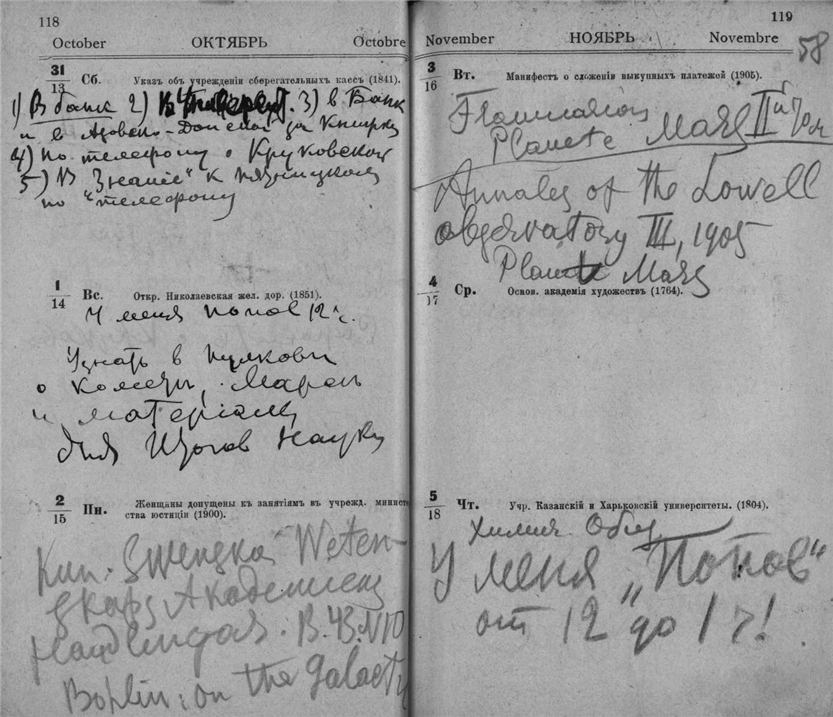 118
October ОКТЯБРЬ Octobre
31
13
Сб. Указъ объ учрежденіи сберегательныхъ кассъ (1841).
1) В банк 2) В 3) в Банк
и в Азовско-Донской за книжку
4) по телефону о Круковской
5) В „Знаніе“ к Пятницкому
по телефону
1
14
Вс. Откр. Николаевская жел. дор. (1851).
У меня Попов 12 ч.
Узнать в Пулкови
о кометы, Марсъ
и матеріалы
для Итогов Науки
2
15
Пн. Женщины допущены къ занятіямъ въ учрежд. министер-
ства юстиціи (1900).
Kun. Swenska Weten-
skaps Akademiens
Handlingar. B. 43. N 10
Bohlin: on the galactic
119
November НОЯБРЬ Novembre
58
3
16
Вт. Манифестъ о сложеніи выкупныхъ платежей (1905).
Flammarion
Planete Mars II й том
Annales of the Lowell
observatory III, 1905
Planet Mars
4
17
Ср. Основ. академія художествъ (1764).
5
18
Чт. Учр. Казанскій и Харьковскій университеты. (1804).
Химия
У меня „Попов“
от 12 до 1 ч!